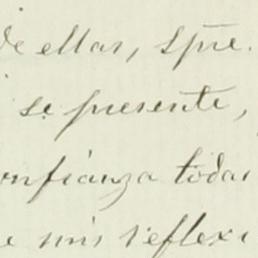 de ellas, Spre.
se presente,
onfianza todas
e mis reflexi